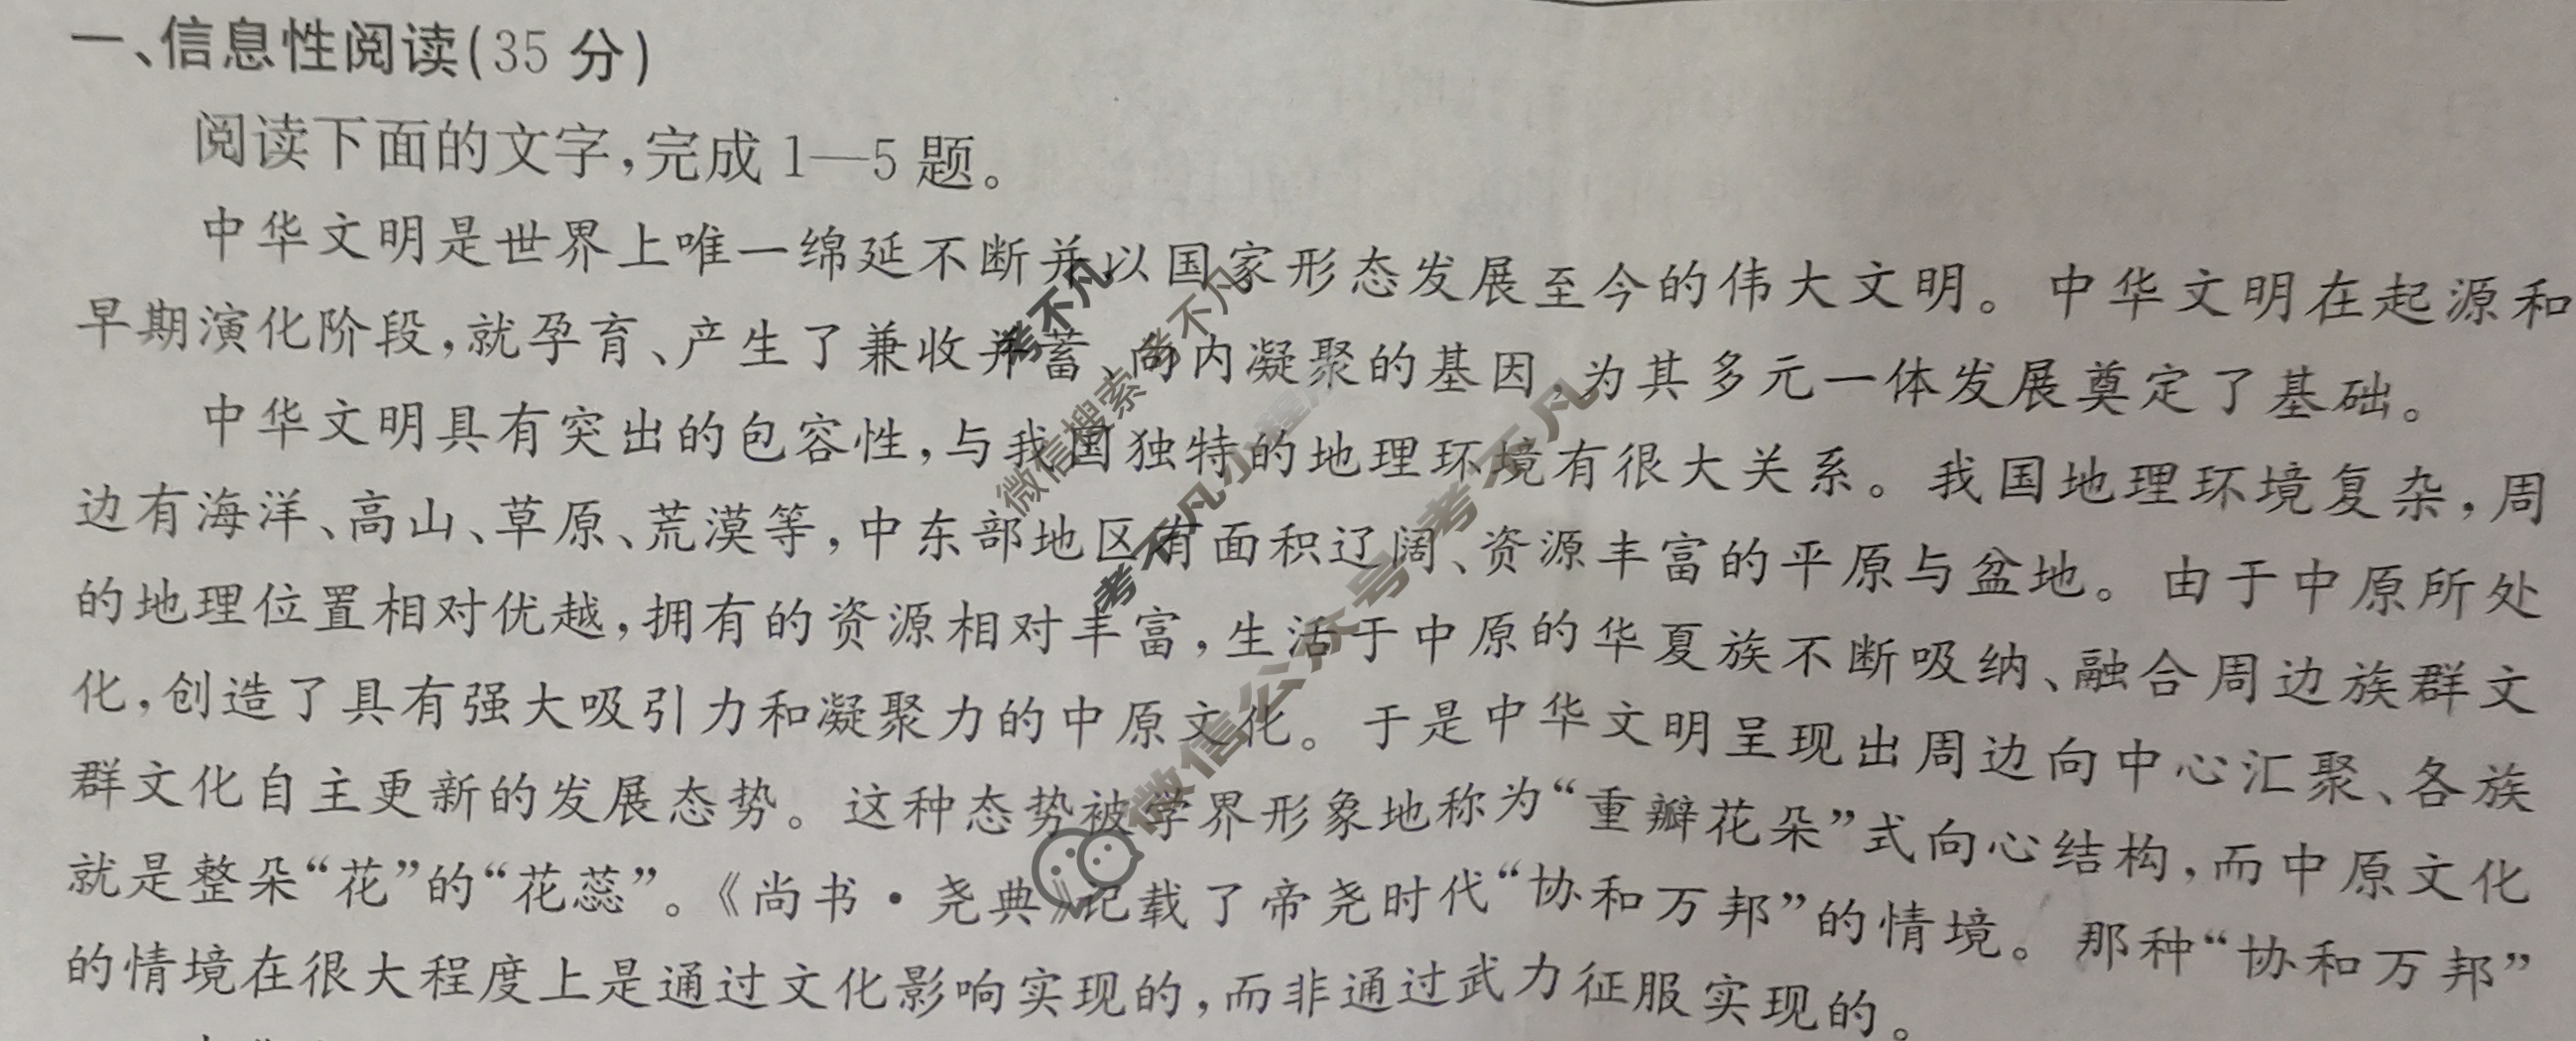 一、信息性阅读(35 分)
阅读下面的文字,完成 1—5 题。
中华文明是世界上唯一绵延不断并以国家形态发展至今的伟大文明。中华文明在起源和
早期演化阶段,就孕育、产生了兼收并蓄、向内凝聚的基因,为其多元一体发展奠定了基础。
中华文明具有突出的包容性,与我国独特的地理环境有很大关系。我国地理环境复杂,周
边有海洋、高山、草原、荒漠等,中东部地区有面积辽阔、资源丰富的平原与盆地。由于中原所处
的地理位置相对优越,拥有的资源相对丰富,生活于中原的华夏族不断吸纳、融合周边族群文
化,创造了具有强大吸引力和凝聚力的中原文化。于是中华文明呈现出周边向中心汇聚、各族
群文化自主更新的发展态势。这种态势被学界形象地称为“重瓣花朵”式向心结构,而中原文化
就是整朵“花”的“花蕊”。《尚书·尧典》记载了帝尧时代“协和万邦”的情境。那种“协和万邦”
的情境在很大程度上是通过文化影响实现的,而非通过武力征服实现的。
考不凡
微信搜索 考不凡
微信公众号 考不凡